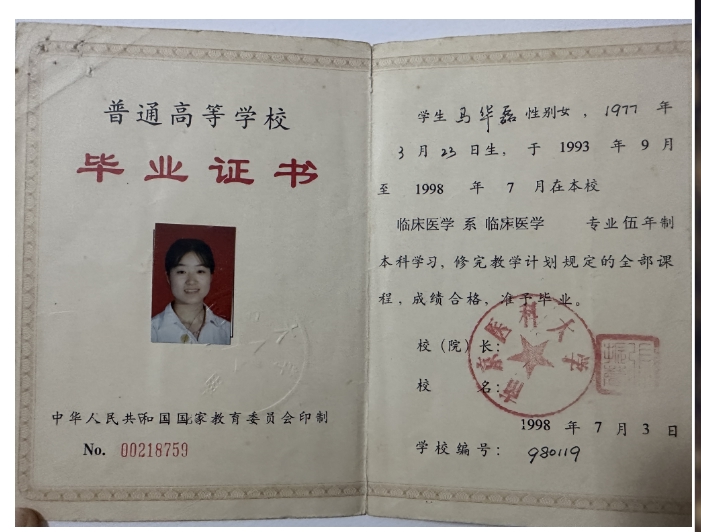 普通高等学校
毕业证书
中华人民共和国国家教育委员会印制
No. 00218759
学生 马华磊 性别女，1977 年
3 月 23 日生，于 1993 年 9 月
至 1998 年 7 月在本校
临床医学 系 临床医学 专业伍年制
本科学习，修完教学计划规定的全部课
程，成绩合格，准予毕业。
校（院）长：
校 名：
南京医科大学
1998 年 7 月 3 日
学校编号：980119